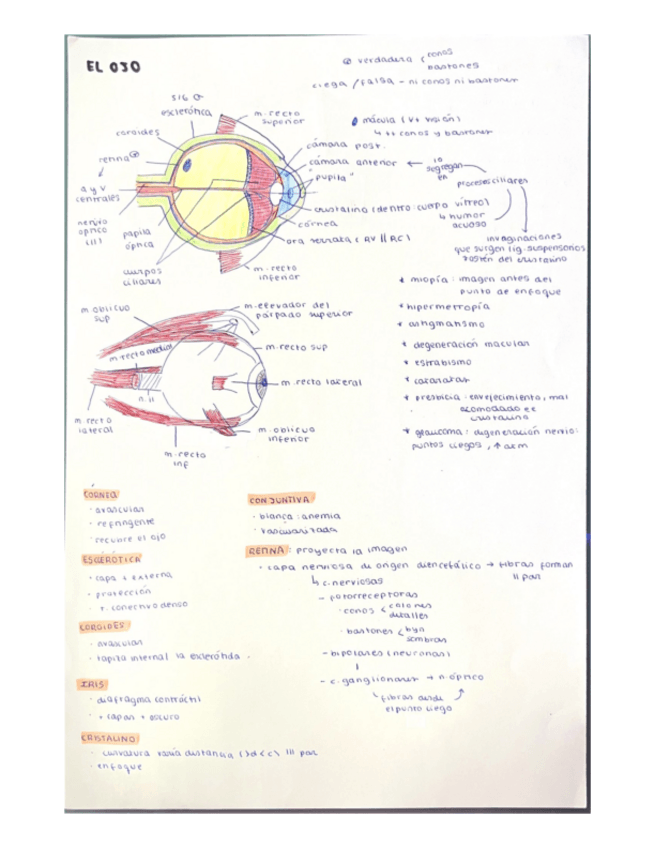 EL OJO
verdadera
conos
bastones
ciega / falsa - ni conos ni bastones
mácula (v+ visión)
↳ ++ conos y bastones
esclerótica
m. recto
superior
coroides
retina
a y v
centrales
nervio
óptico
(II)
papila
óptica
cuerpos
ciliares
cámara post.
cámara anterior ← lo
segregan
en
procesos ciliares
"pupila"
cristalino (dentro: cuerpo vítreo)
↳ humor
acuoso
córnea
ora serrata ( RV || RC )
invaginaciones
que surgen lig. suspensorios
sosten del cristalino
m. recto
inferior
* miopía : imagen antes del
punto de enfoque
* hipermetropía
* astigmatismo
* degeneración macular
* estrabismo
* cataratas
* presbicia : envejecimiento, mal
acomodado
cristalino
* glaucoma : degeneración nervio:
puntos ciegos, ↑
m. oblicuo
sup
m. elevador del
párpado superior
m. recto medial
m. recto sup
m. recto lateral
n. II
m. recto
lateral
m. recto
inf
m. oblicuo
inferior
CÓRNEA
· avascular
· refringente
· recubre el ojo
ESCLERÓTICA
· capa + externa
· protección
· t. conectivo denso
COROIDES
· avascular
· tapiza internal la esclerótida
IRIS
· diafragma contráctil
· + capas + oscuro
CRISTALINO
· curvatura varía distancia III par
· enfoque
CONJUNTIVA
· blanca : anemia
· vascularizada
RETINA : proyecta la imagen
· capa nerviosa de origen diencefálico → fibras forman
II par
↳ c. nerviosas
- fotorreceptoras
· conos < colores
detalles
· bastones < byn
sombras
- bipolares (neuronas)
- c. ganglionares → n. óptico
↳ fibras donde
el punto ciego